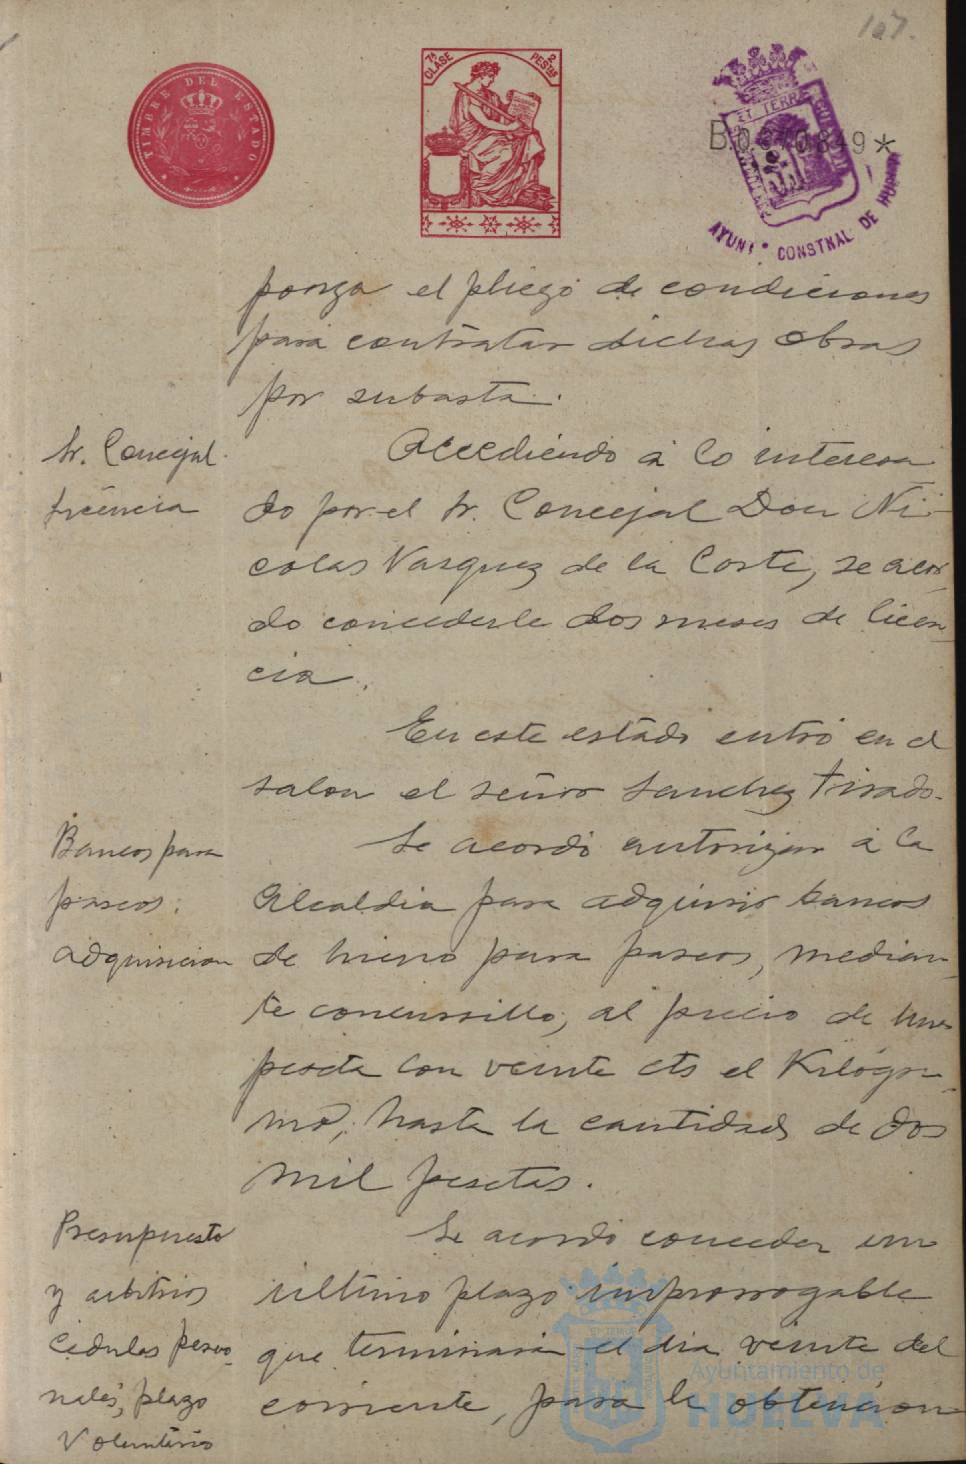 107.
TIMBRE DEL ESTADO
7ª CLASE
2 PESTAS
AYUNTº CONSTNAL DE HUELVA
ponga el pliego de condiciones
para contratar dichas obras
por subasta.
Sr. Concejal
licencia
Accediendo á lo interesa
do por el Sr. Concejal Don Ni-
colas Vazquez de la Corte, se acor
do concederle dos meses de licen
cia.
En este estado entró en el
salon el señor Sanchez Tirado.
Bancos para
paseos.
adquisicion
Se acordó autorizar á la
Alcaldia para adquirir bancos
de hierro para paseos, median-
te concursillo, al precio de una
peseta con veinte cts el Kilógra-
mo, hasta la cantidad de dos
mil pesetas.
Presupuesto
y arbitrios
Cedulas perso-
nales, plazo
Voluntario
Se acordó conceder un
último plazo improrrogable
que terminará el dia veinte del
corriente, para la obtencion
Ayuntamiento de
HUELVA